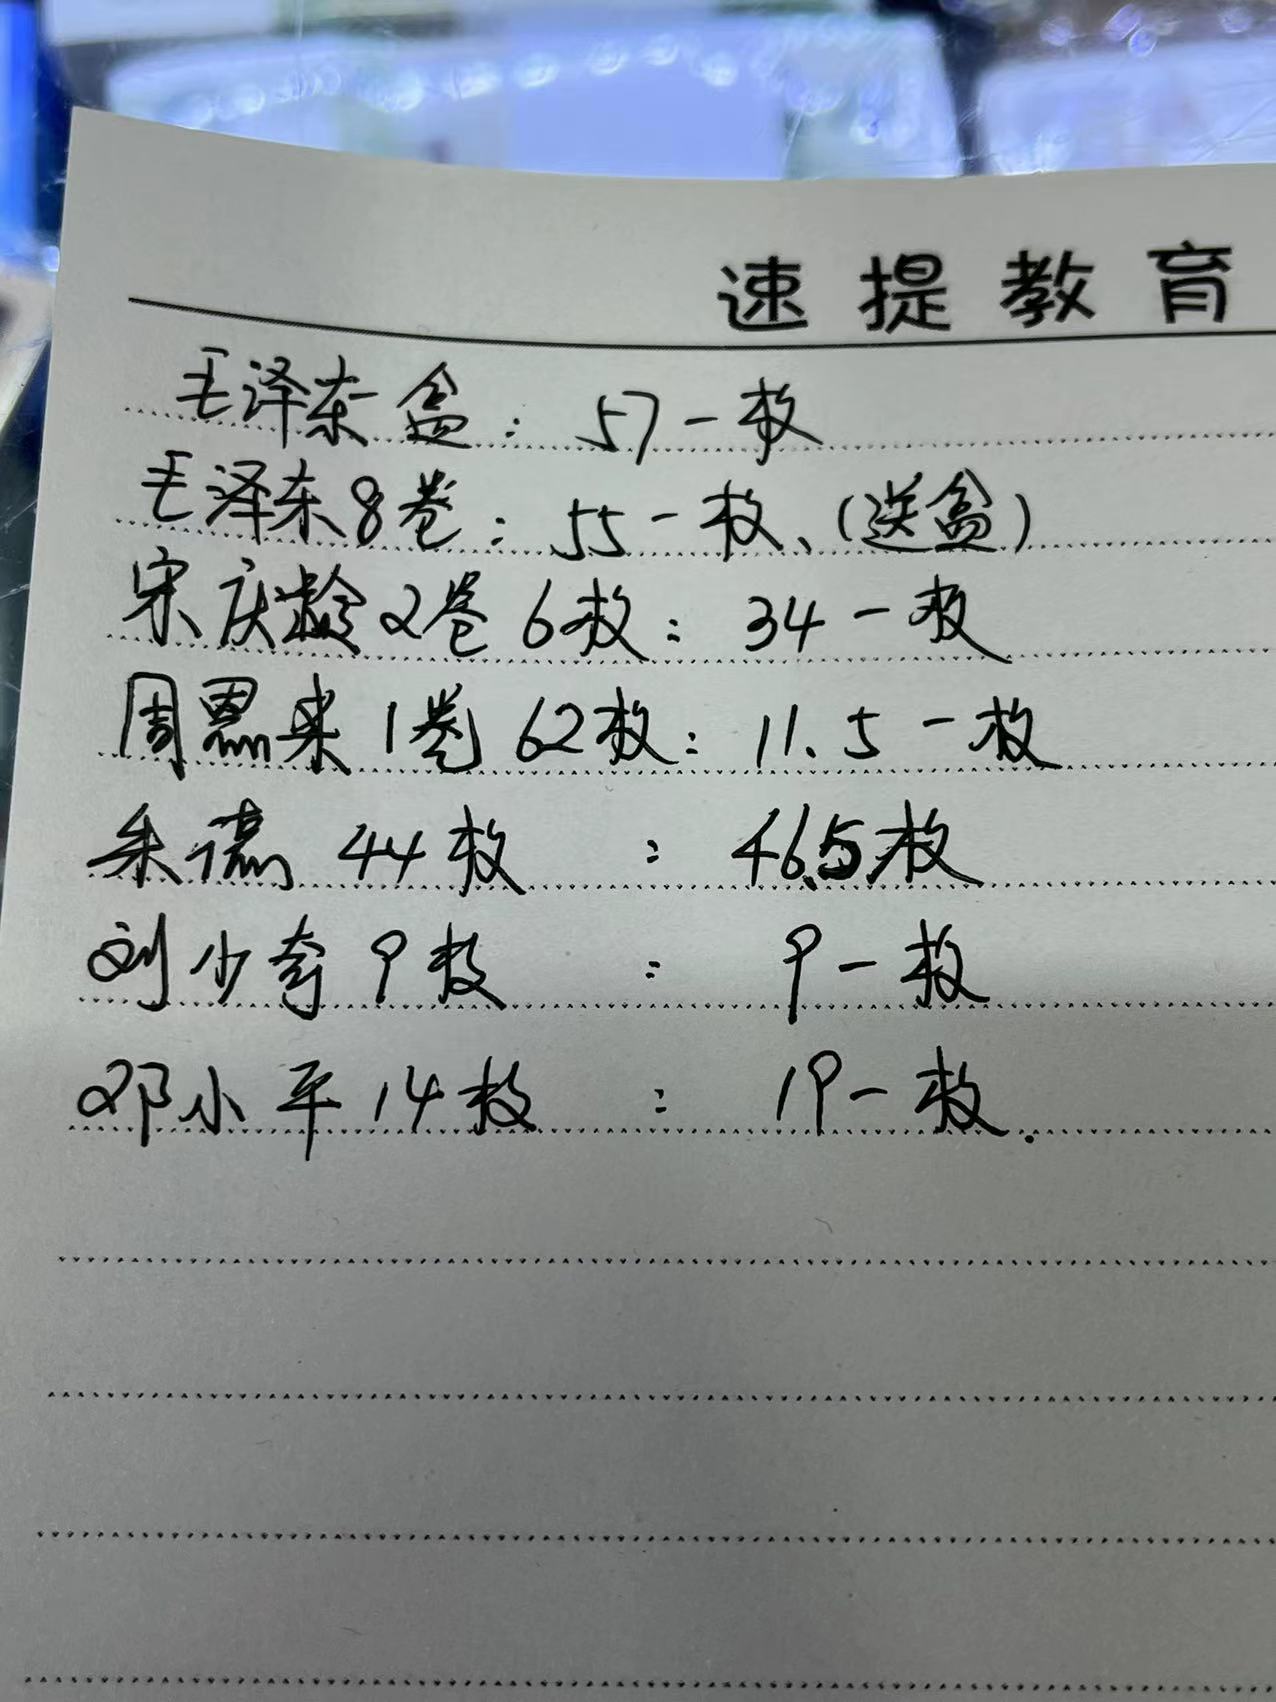 速提教育
毛泽东盒：57一枚
毛泽东8卷：55一枚、(送盒)
宋庆龄2卷6枚：34一枚
周恩来1卷62枚：11.5一枚
朱德44枚：46.5枚
刘少奇9枚：9一枚
邓小平14枚：19一枚.